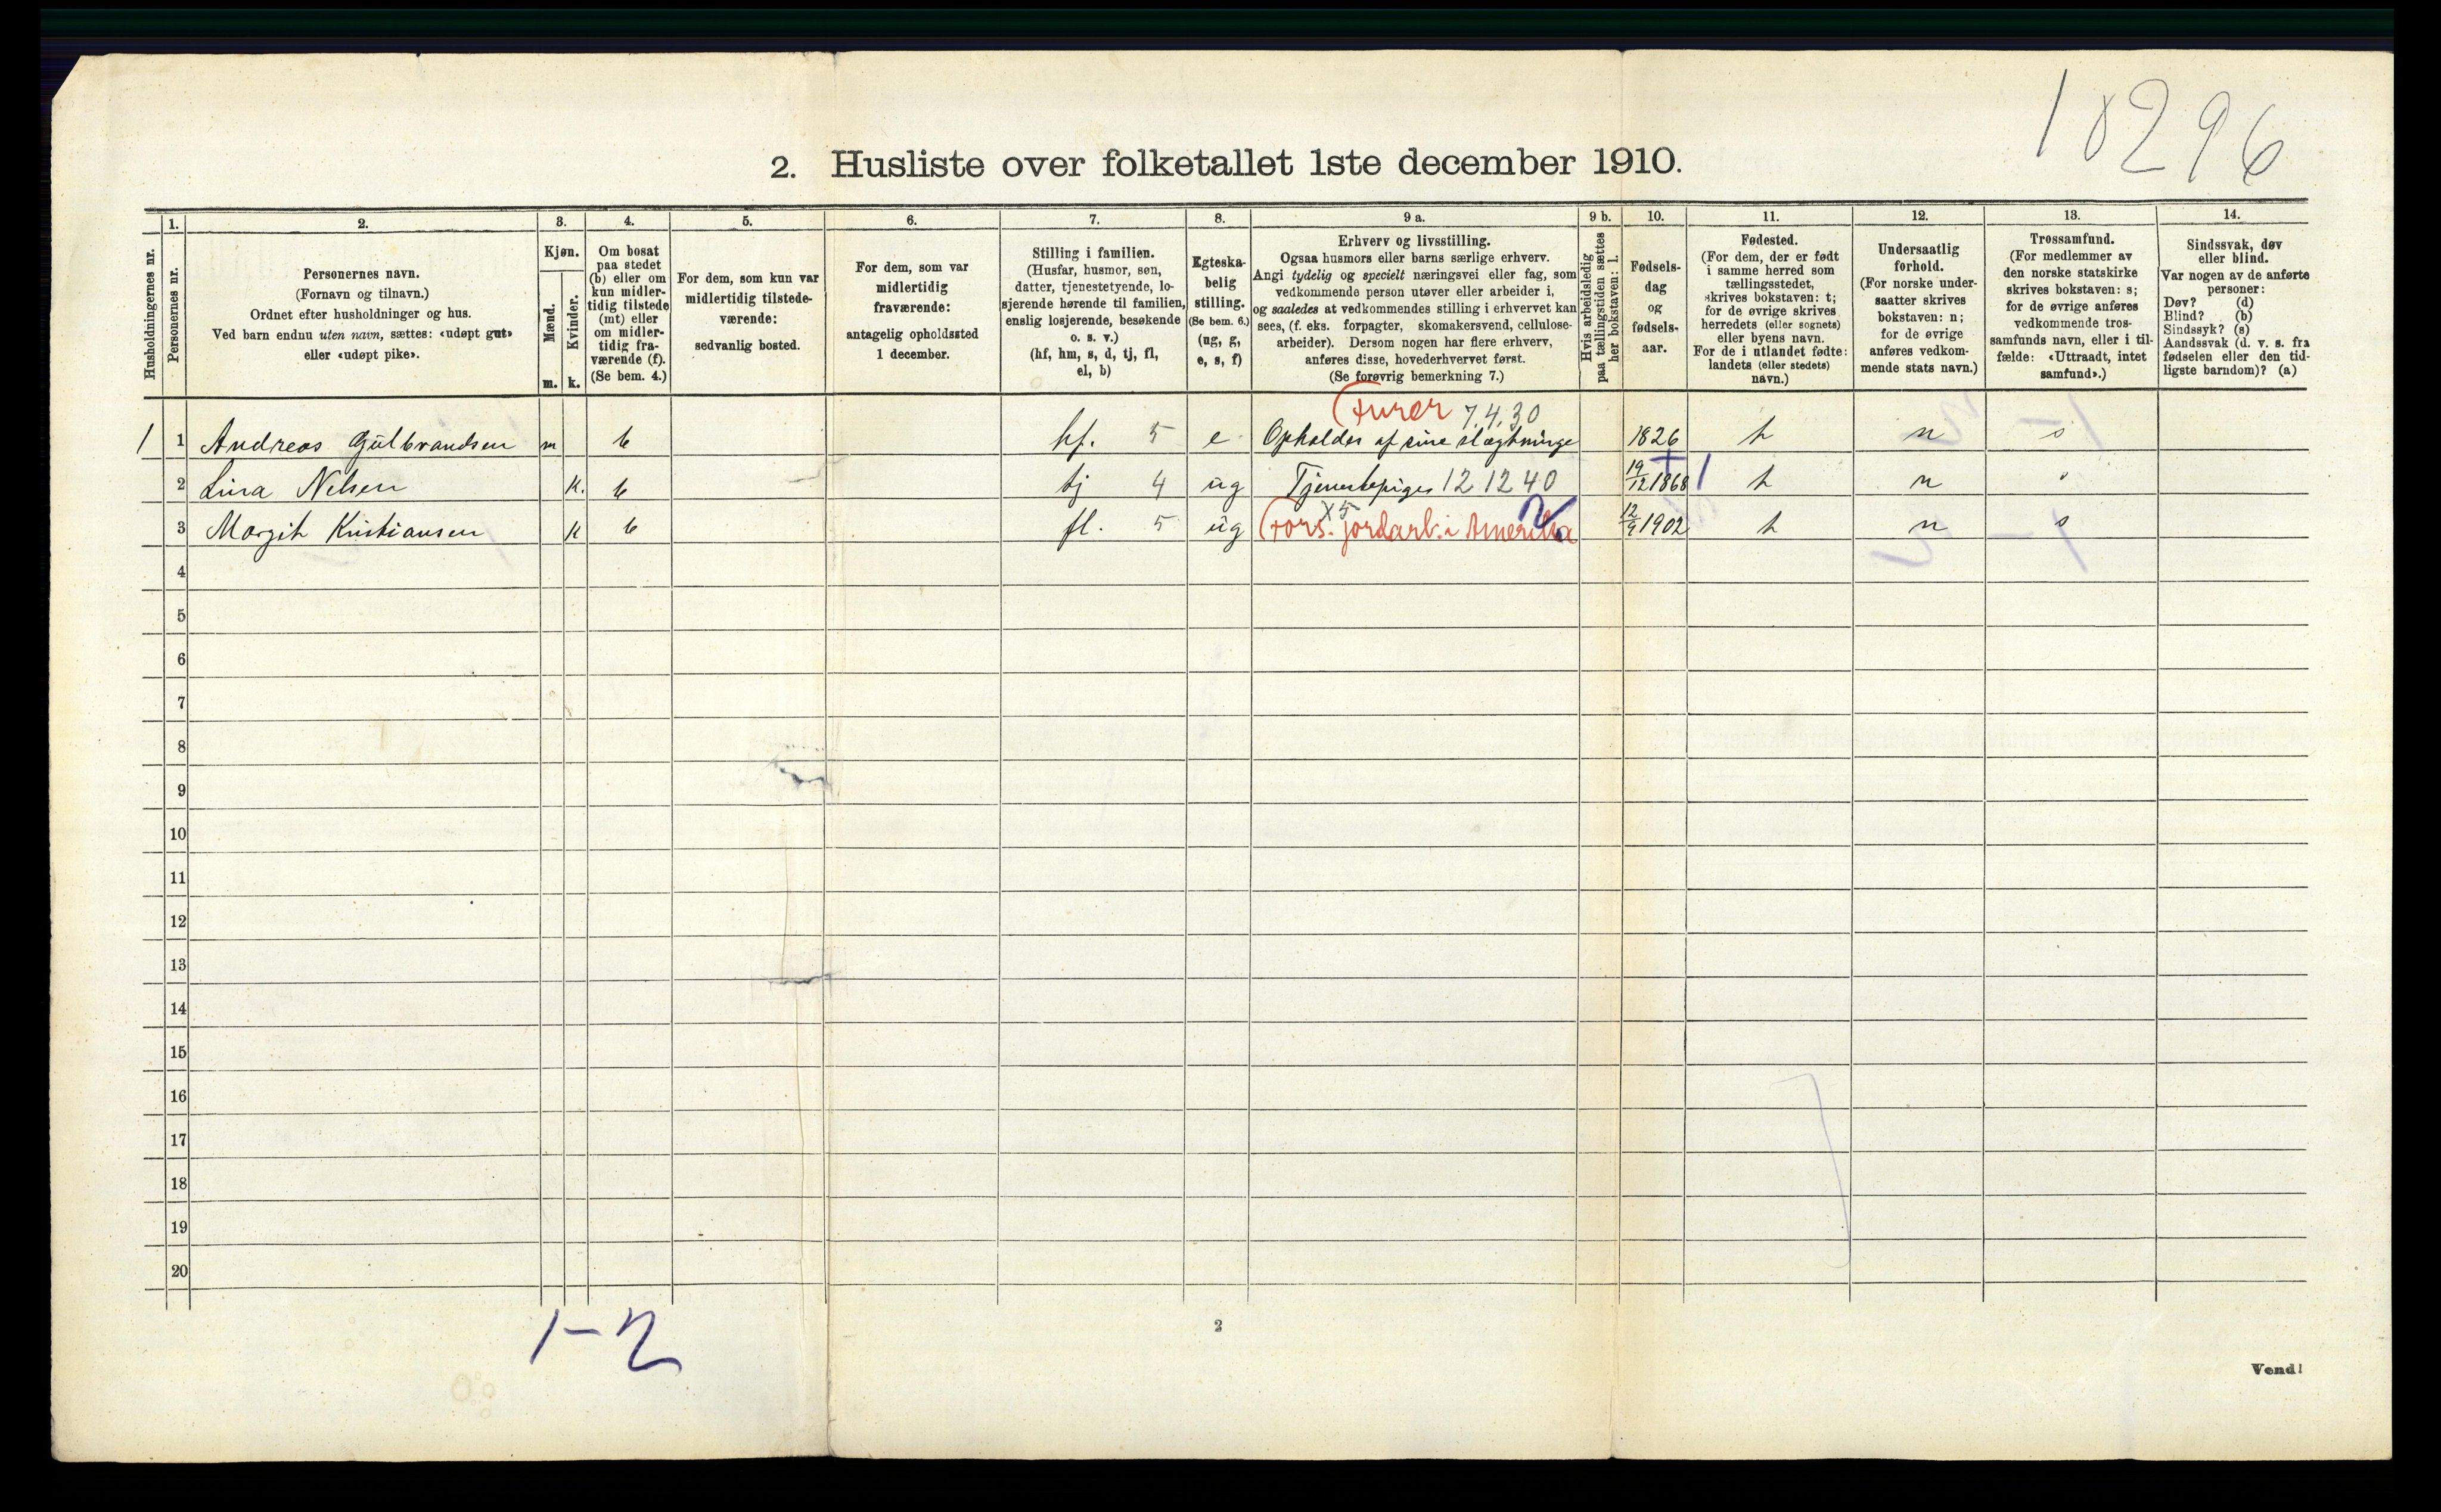 10296
2. Husliste over folketallet 1ste december 1910.
Husholdningernes nr.
1.
Personernes nr.
2.
Personernes navn.
(Fornavn og tilnavn.)
Ordnet efter husholdninger og hus.
Ved barn endnu uten navn, sættes: «udøpt gut»
eller «udøpt pike».
3.
Kjøn.
Mænd.
Kvinder.
m. k.
4.
Om bosat
paa stedet
(b) eller om
kun midler-
tidig tilstede
(mt) eller
om midler-
tidig fra-
værende (f).
(Se bem. 4.)
5.
For dem, som kun var
midlertidig tilstede-
værende:
sedvanlig bosted.
6.
For dem, som var
midlertidig
fraværende:
antagelig opholdssted
1 december.
7.
Stilling i familien.
(Husfar, husmor, søn,
datter, tjenestetyende, lo-
sjerende hørende til familien,
enslig losjerende, besøkende
o. s. v.)
(hf, hm, s, d, tj, fl,
el, b)
8.
Egteska-
belig
stilling.
(Se bem. 6.)
(ug, g,
e, s, f)
9 a.
Erhverv og livsstilling.
Ogsaa husmors eller barns særlige erhverv.
Angi tydelig og specielt næringsvei eller fag, som
vedkommende person utøver eller arbeider i,
og saaledes at vedkommendes stilling i erhvervet kan
sees, (f. eks. forpagter, skomakersvend, cellulose-
arbeider). Dersom nogen har flere erhverv,
anføres disse, hovederhvervet først.
(Se forøvrig bemerkning 7.)
9 b.
Hvis arbeidsledig
paa tællingstiden sættes
her bokstaven: l.
10.
Fødsels-
dag
og
fødsels-
aar.
11.
Fødested.
(For dem, der er født
i samme herred som
tællingsstedet,
skrives bokstaven: t;
for de øvrige skrives
herredets (eller sognets)
eller byens navn.
For de i utlandet fødte:
landets (eller stedets)
navn.)
12.
Undersaatlig
forhold.
(For norske under-
saatter skrives
bokstaven: n;
for de øvrige
anføres vedkom-
mende stats navn.)
13.
Trossamfund.
(For medlemmer av
den norske statskirke
skrives bokstaven: s;
for de øvrige anføres
vedkommende tros-
samfunds navn, eller i til-
fælde: «Uttraadt, intet
samfund».)
14.
Sindssvak, døv
eller blind.
Var nogen av de anførte
personer:
Døv? (d)
Blind? (b)
Sindssyk? (s)
Aandssvak (d. v. s. fra
fødselen eller den tid-
ligste barndom)? (a)
7.4.30
1 1 Andreas Gulbrandsen m b hf. 5 e Opholdes af sine slægtninge 1826 t n s
2 Lina Nelsen k. b tj 4 ug Tjenestepiges 12 12 40 19/12 1868 1 t n "
x5 2
3 Margit Kristiansen k b fl. 5 ug (fors. jordarb. i Amerika 12/9 1902 t n s
4
5
6
7
8
9
10
11
12
13
14
15
16
17
18
19
20
1-2
2
Vend!